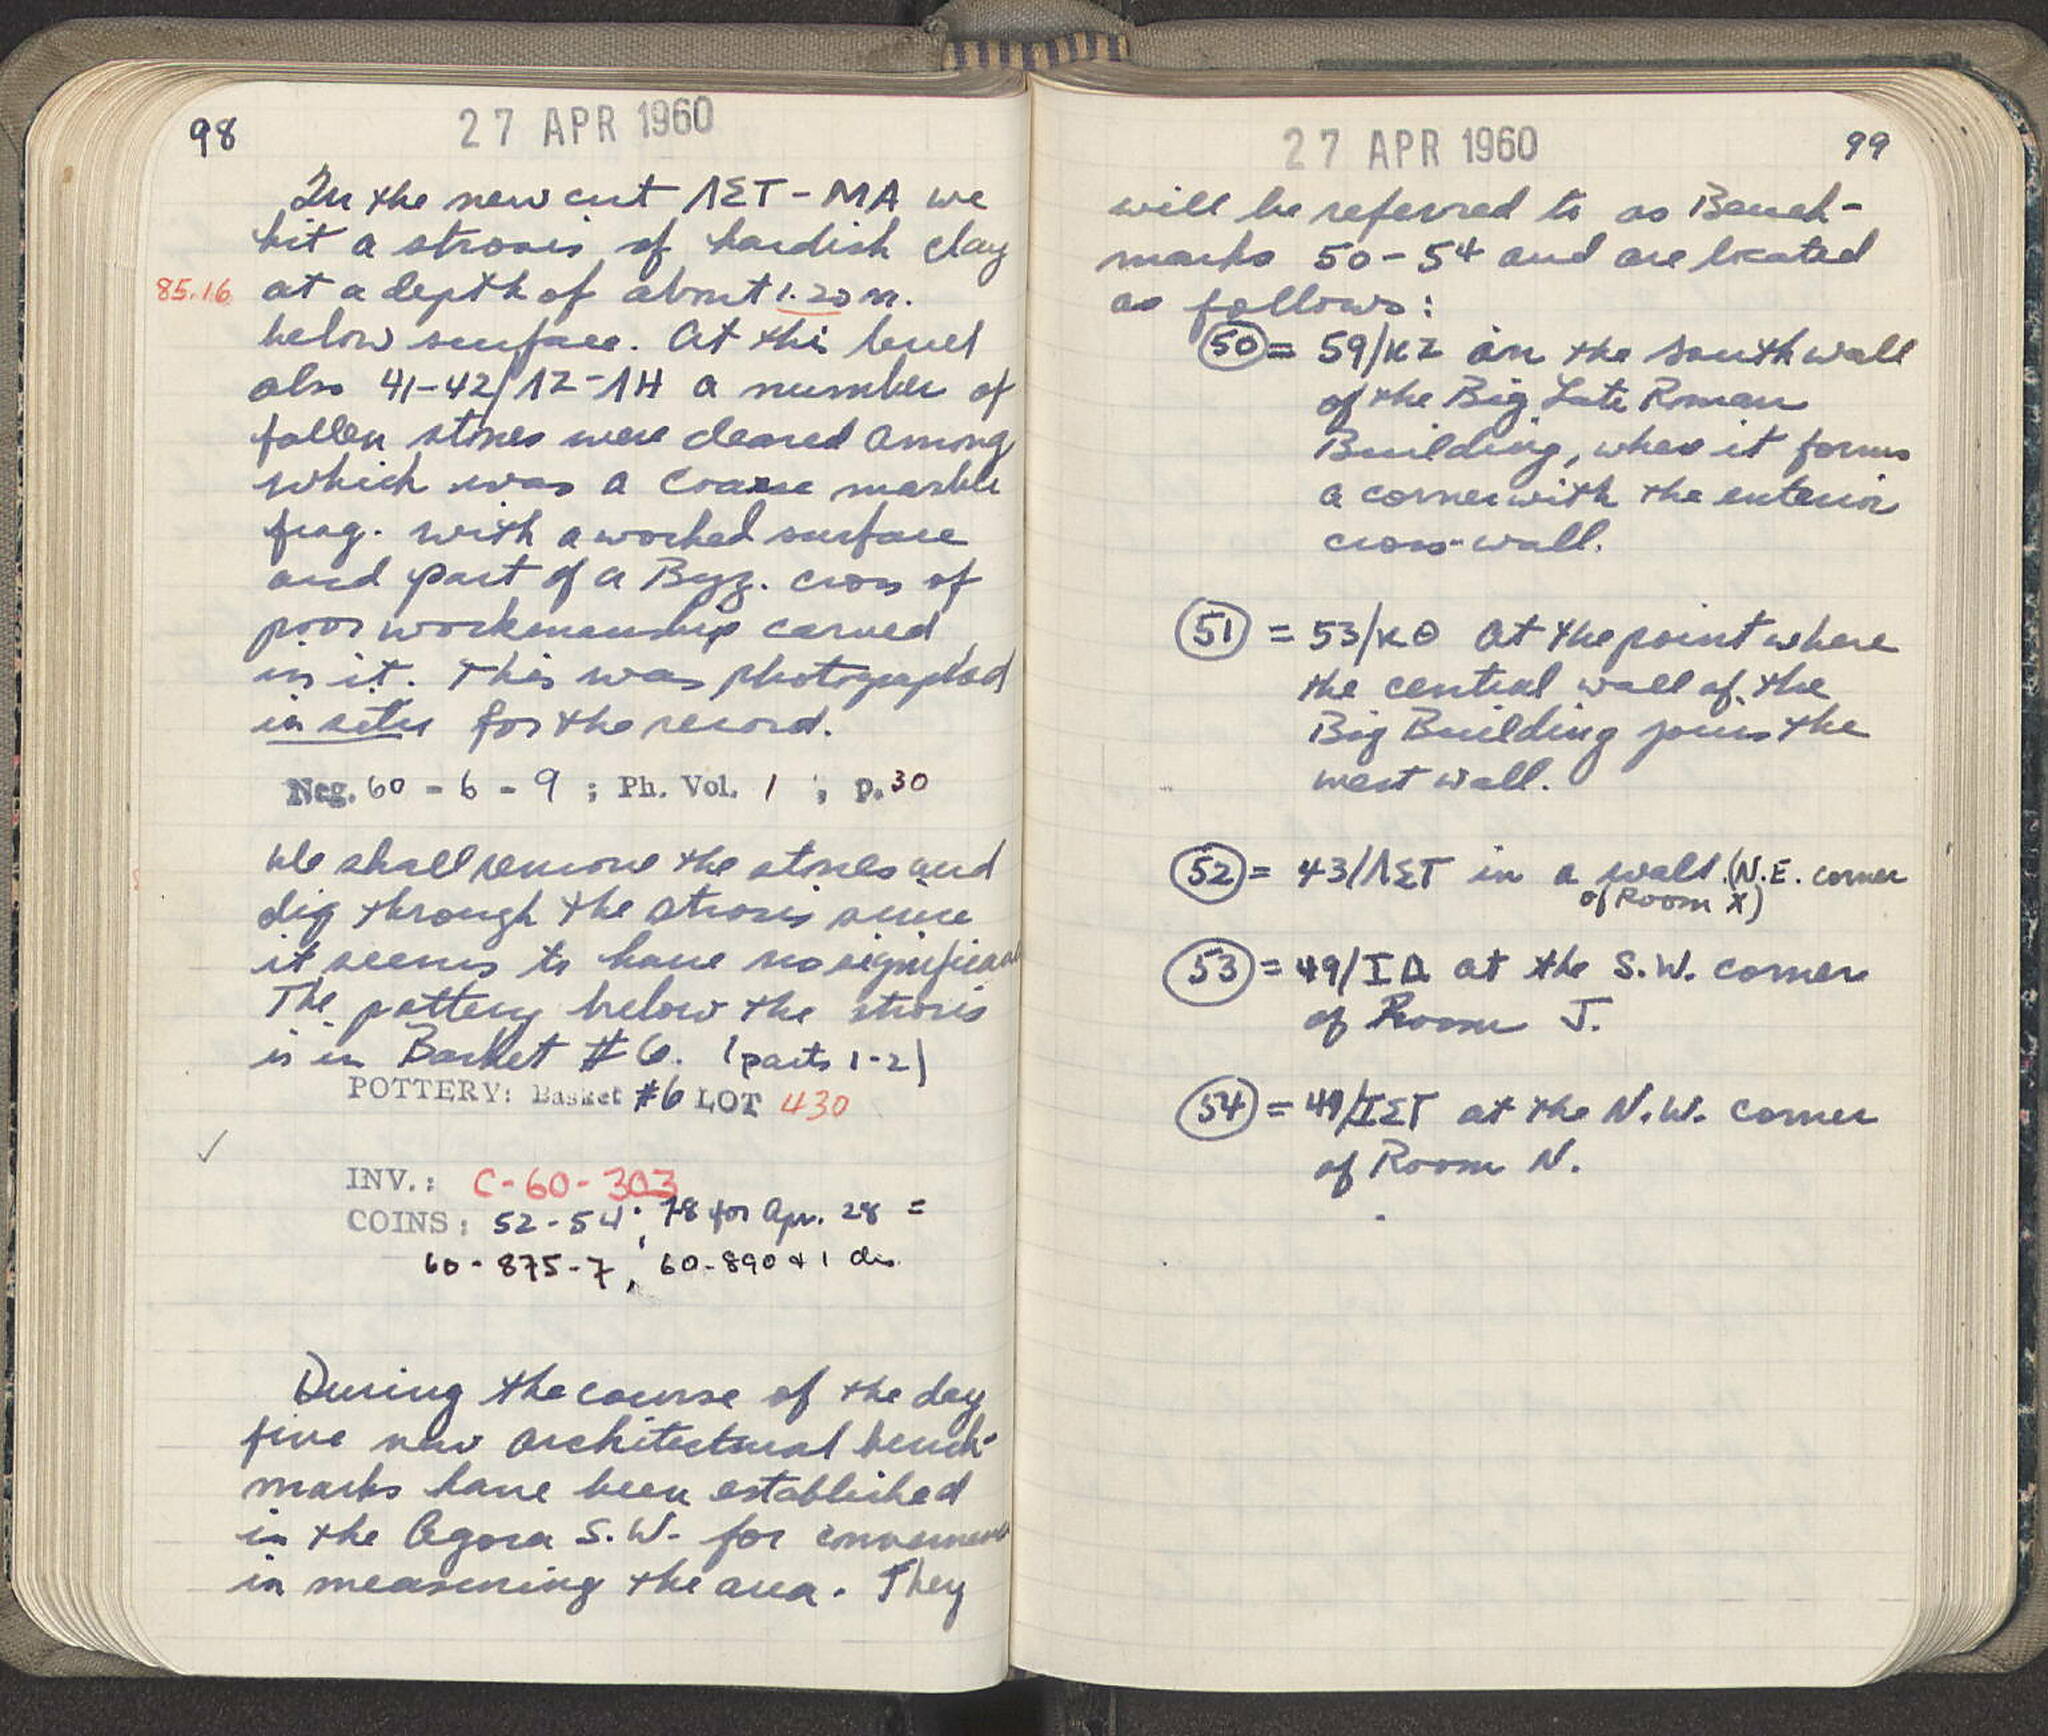 98
27 APR 1960
In the new cut ΛΣΤ-ΜΑ we
hit a strosis of hardish clay
85.16 at a depth of about 1.20 m.
below surface. At this level
also 41-42/ΛΖ-ΛΗ a number of
fallen stones were cleared among
which was a coarse marble
frag. with a worked surface
and part of a Byz. cross of
poor workmanship carved
in it. This was photographed
in situ for the record.
Neg. 60-6-9; Ph. Vol. 1; p. 30
We shall remove the stones and
dig through the strosis since
it seems to have no significan
The pottery below the strosis
is in Basket #6. (parts 1-2)
POTTERY: Basket #6 LOT 430
✓
INV.: C-60-303
COINS: 52-54; 78 for Apr. 28 =
60-875-7, 60-890 & 1 dis.
During the course of the day
five new architectural bench-
marks have been established
in the Agora S.W. for convenience
in measuring the area. They
27 APR 1960
99
will be referred to as Bench-
marks 50-54 and are located
as follows:
50 = 59/ΚΖ on the south wall
of the Big Late Roman
Building, where it forms
a corner with the exterior
cross-wall.
51 = 53/ΚΘ at the point where
the central wall of the
Big Building joins the
west wall.
52 = 43/ΛΣΤ in a wall. (N.E. corner
of Room X)
53 = 49/ΙΔ at the S.W. corner
of Room J.
54 = 49/ΙΣΤ at the N.W. corner
of Room N.